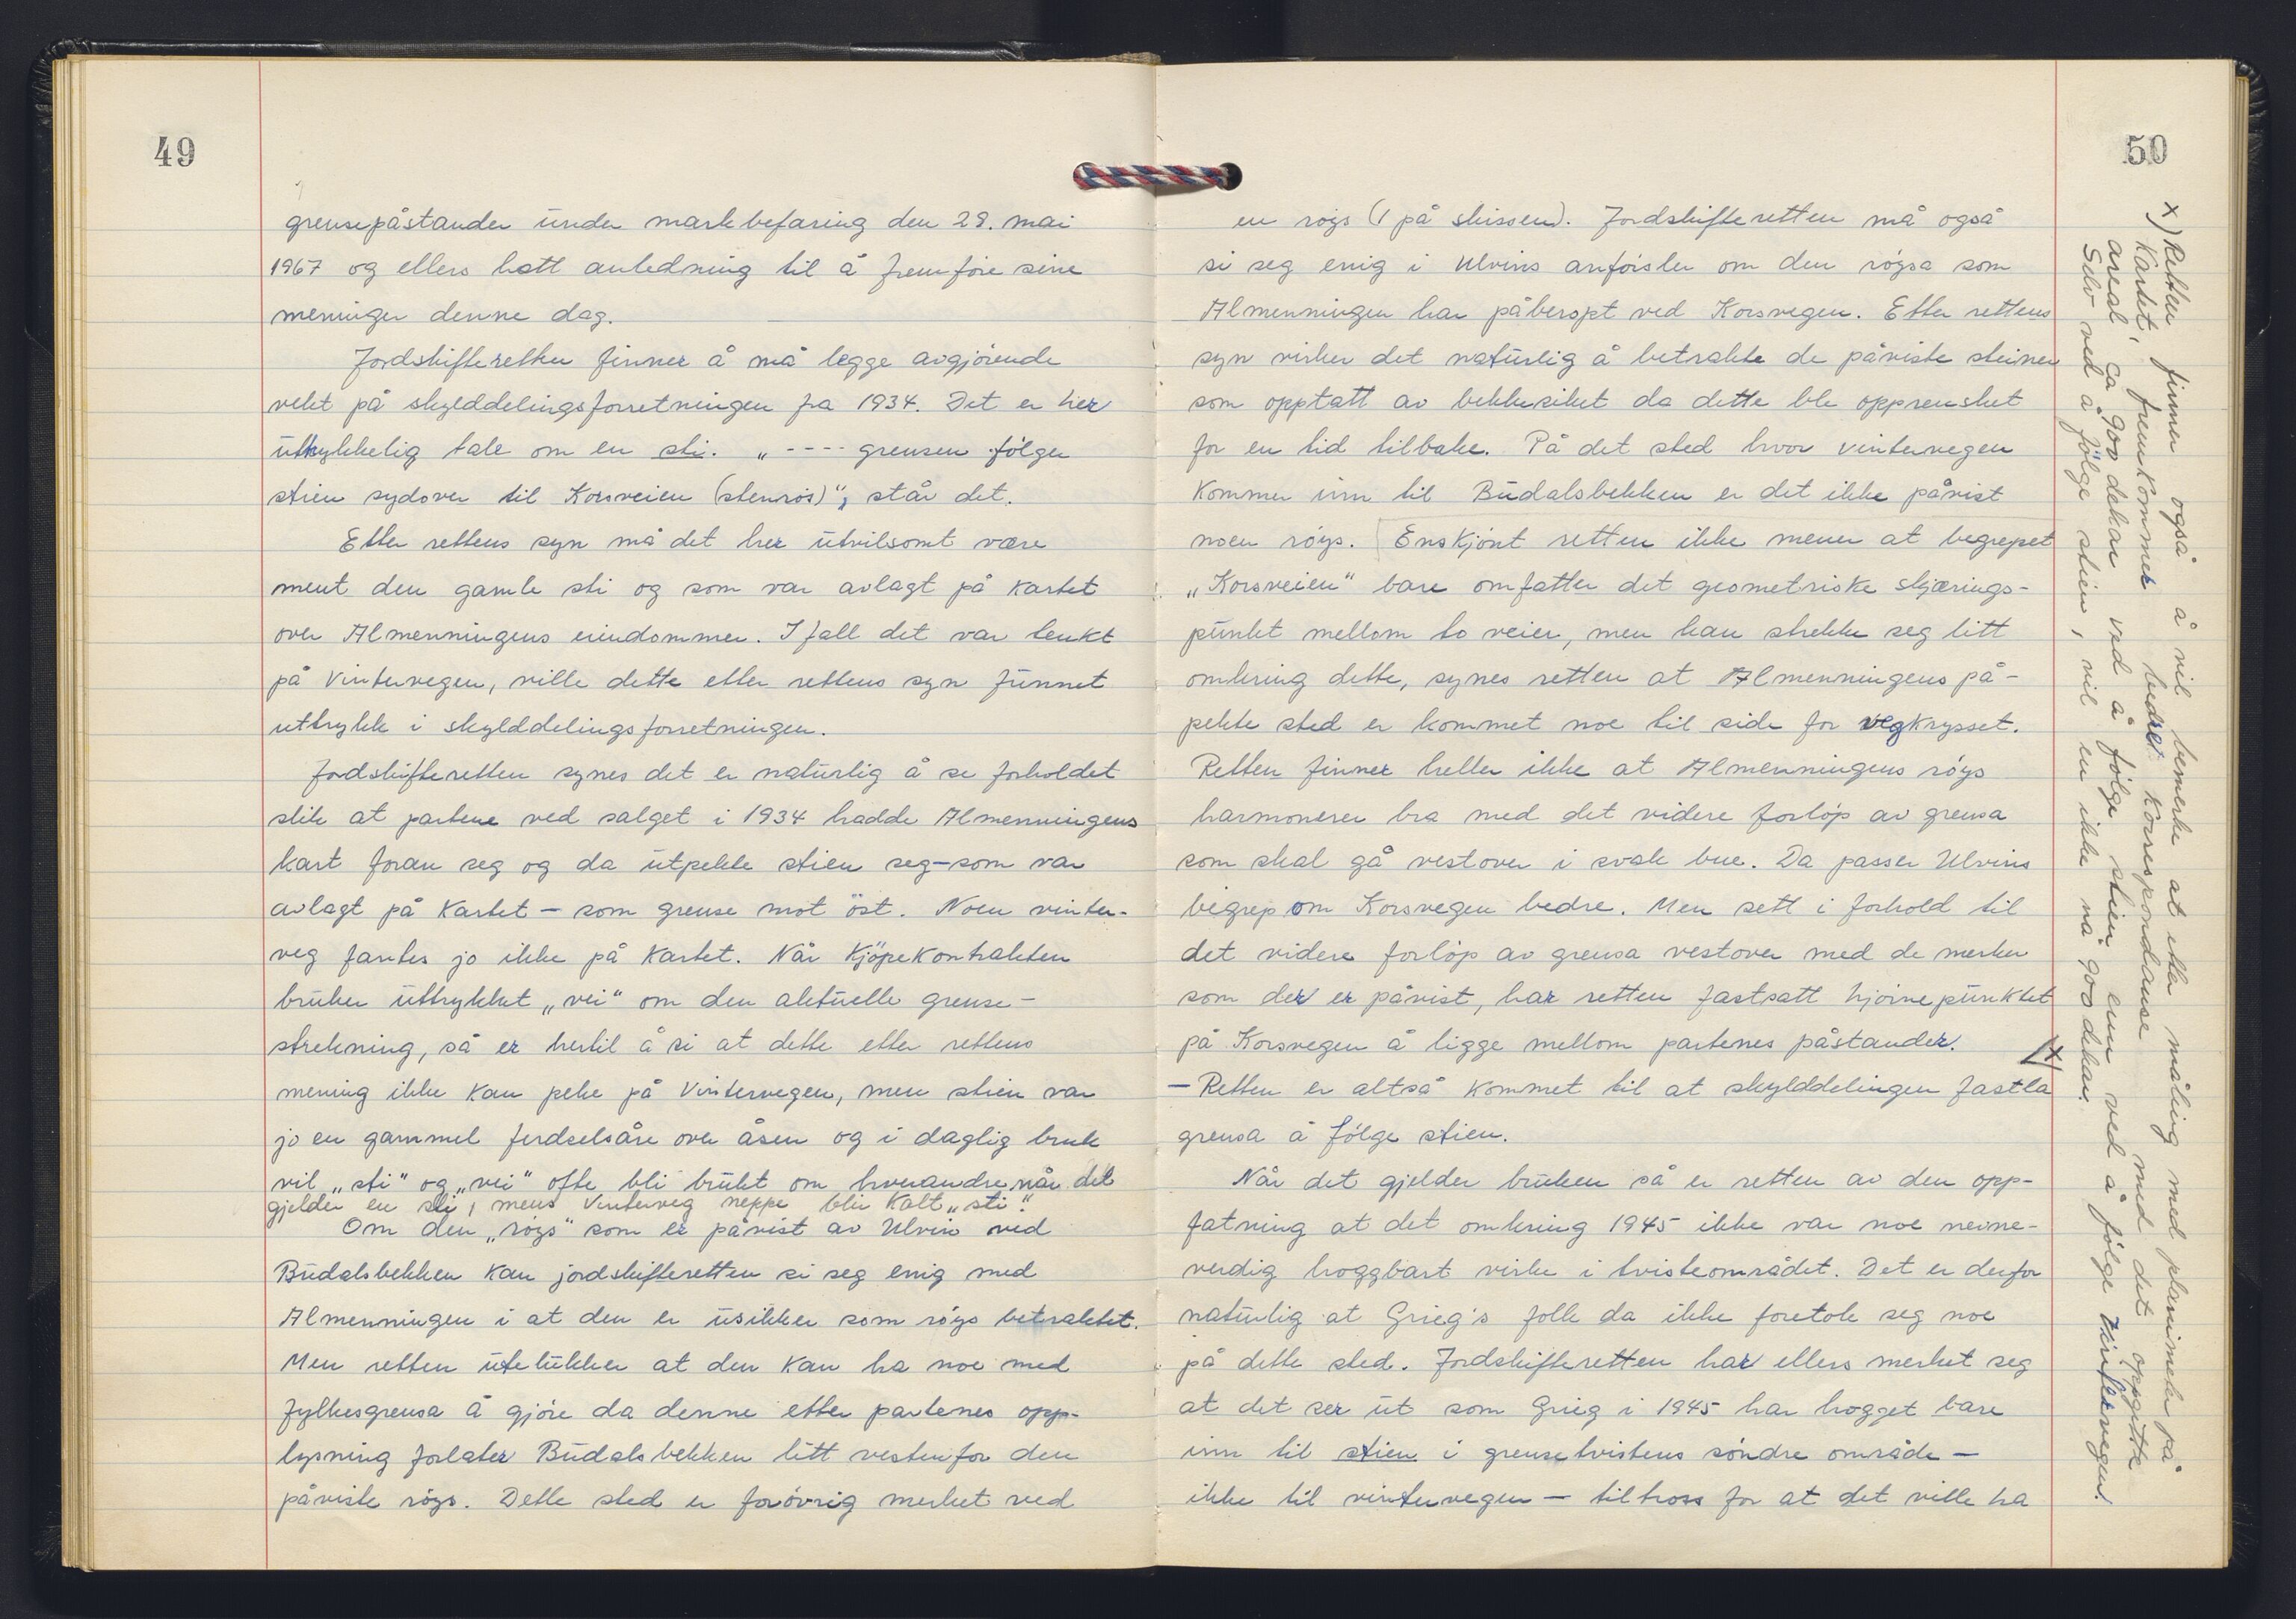 49
grensepåstander under markbefaring den 29. mai
1967 og ellers hatt anledning til å fremføre sine
meninger denne dag.
Jordskifteretten finner å må legge avgjørende
vekt på skylddelingsforretningen fra 1934. Det er her
uttrykkelig tale om en sti. „ ---- grensen følger
stien sydover til Korsveien (stenrøs)", står det.
Etter rettens syn må det her utvilsomt være
ment den gamle sti og som var avlagt på kartet
over Almenningens eiendommer. I fall det var tenkt
på Vintervegen, ville dette etter rettens syn funnet
uttrykk i skylddelingsforretningen.
Jordskifteretten synes det er naturlig å se forholdet
slik at partene ved salget i 1934 hadde Almenningens
kart foran seg og da utpekte stien seg – som var
avlagt på kartet – som grense mot öst. Noen vinter-
veg fantes jo ikke på kartet. Når Kjöpekontrakten
bruker uttrykket „vei" om den aktuelle grense-
strekning, så er hertil å si at dette etter rettens
mening ikke kan peke på Vintervegen, men stien var
jo en gammel ferdselsåre over åsen og i daglig bruk
vil „sti" og „vei" ofte bli brukt om hverandre når det
gjelder en sti, mens Vinterveg neppe blir kalt „sti".
Om den „röys" som er påvist av Ulvin ved
Budalsbekken kan jordskifteretten si seg enig med
Almenningen i at den er usikker som röys betraktet.
Men retten utelukker at den kan ha noe med
fylkesgrensa å gjöre da denne etter partenes opp-
lysning forlater Budalsbekken litt vestenfor den
påviste röys. Dette sted er forövrig merket ved
50
en röys (1 på skissen). Jordskifteretten må også
si seg enig i Ulvins anförsler om den röysa som
Almenningen har påberopt ved Korsvegen. Etter rettens
syn virker det naturlig å betrakte de påviste steiner
som opptatt av bekkesiket da dette ble opprensket
for en tid tilbake. På det sted hvor vintervegen
kommer inn til Budalsbekken er det ikke påvist
noen röys. Enskjönt retten ikke mener at begrepet
„Korsveien" bare omfatter det geometriske skjærings-
punkt mellom to veier, men kan strekke seg litt
omkring dette, synes retten at Almenningens på-
pekte sted er kommet noe til side for vegkrysset.
Retten finner heller ikke at Almenningens röys
harmonerer bra med det videre forlöp av grensa
som skal gå vestover i svak bue. Da passer Ulvins
begrep om Korsvegen bedre. Men sett i forhold til
det videre forlöp av grensa vestover med de merker
som der er påvist, har retten fastsatt hjörnepunktet
på Korsvegen å ligge mellom partenes påstander. x)
– Retten er altså kommet til at skylddelingen fastla
grensa å fölge stien.
Når det gjelder bruken så er retten av den opp-
fatning at det omkring 1945 ikke var noe nevne-
verdig hoggbart virke i tvisteområdet. Det er derfor
naturlig at Grieg's folk da ikke foretok seg noe
på dette sted. Jordskifteretten har ellers merket seg
at det ser ut som Grieg i 1945 har hogget bare
inn til stien i grensetvistens söndre område –
ikke til vintervegen – til tross for at det ville ha
x) Retten finner også å vil bemerke at etter måling med planimeter på
kartet, fremkommer bedre korrespondanse med det oppgitte
areal ca 900 dekar ved å fölge stien enn ved å fölge Vintervegen.
Selv ved å fölge stien, vil en ikke nå 900 dekar.